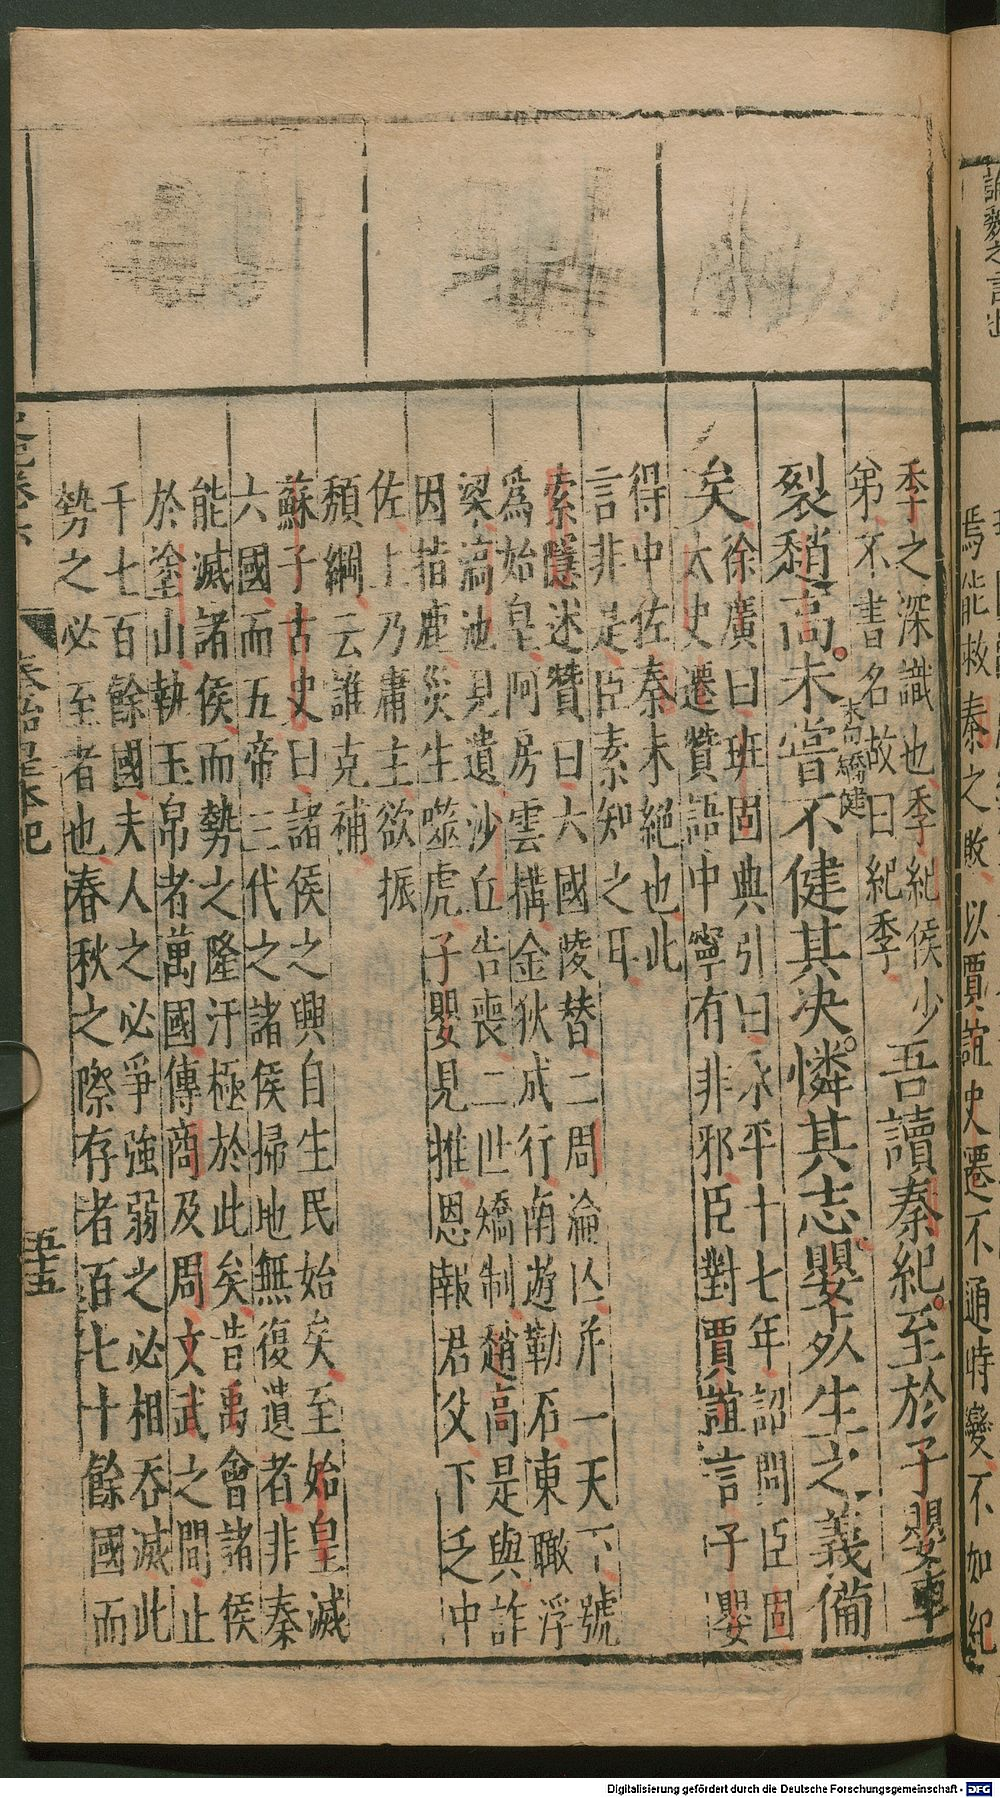 焉能救秦之敗以賈誼史遷不通時變不如紀
季之深識也季紀侯少
弟不書名故曰紀季
吾讀秦紀至於子嬰車
裂趙高未嘗不健其决憐其志嬰死生之義備
末句矯健
矣
徐廣曰班固典引曰永平十七年詔問臣固
太史遷贊語中寧有非邪臣對賈誼言子嬰
得中佐秦未絕也此
言非是臣素知之耳
索隱述贊曰六國陵替二周淪亾并一天下號
為始皇阿房雲構金狄成行南遊勒石東瞰浮
梁滈池見遺沙丘告喪二世矯制趙高是與詐
因指鹿災生噬虎子嬰見推恩報君父下乏中
佐上乃庸主欲振
頹綱云誰克補
蘇子古史曰諸侯之興自生民始矣至始皇滅
六國而五帝三代之諸侯掃地無復遺者非秦
能滅諸侯而勢之隆汙極於此矣昔禹會諸侯
於塗山執玉帛者萬國傳商及周文武之間止
千七百餘國夫人之必爭強弱之必相吞滅此
勢之必至者也春秋之際存者百七十餘國而
史記卷六
秦始皇本紀
五十五
Digitalisierung gefördert durch die Deutsche Forschungsgemeinschaft - DFG